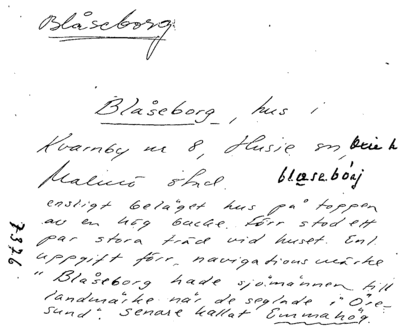 Blåseborg
Blåseborg, hus i
Kvarnby nr 8, Husie sn, Oxie h
Malmö stad. blåsebórj
ensligt beläget hus på toppen
av en hög backe. Förr stod ett
par stora träd vid huset. Enl.
uppgift förr navigationsmärke
"Blåseborg hade sjömännen till
landmärke när de seglade i Öre-
sund". Senare kallat Emmahög.
7376